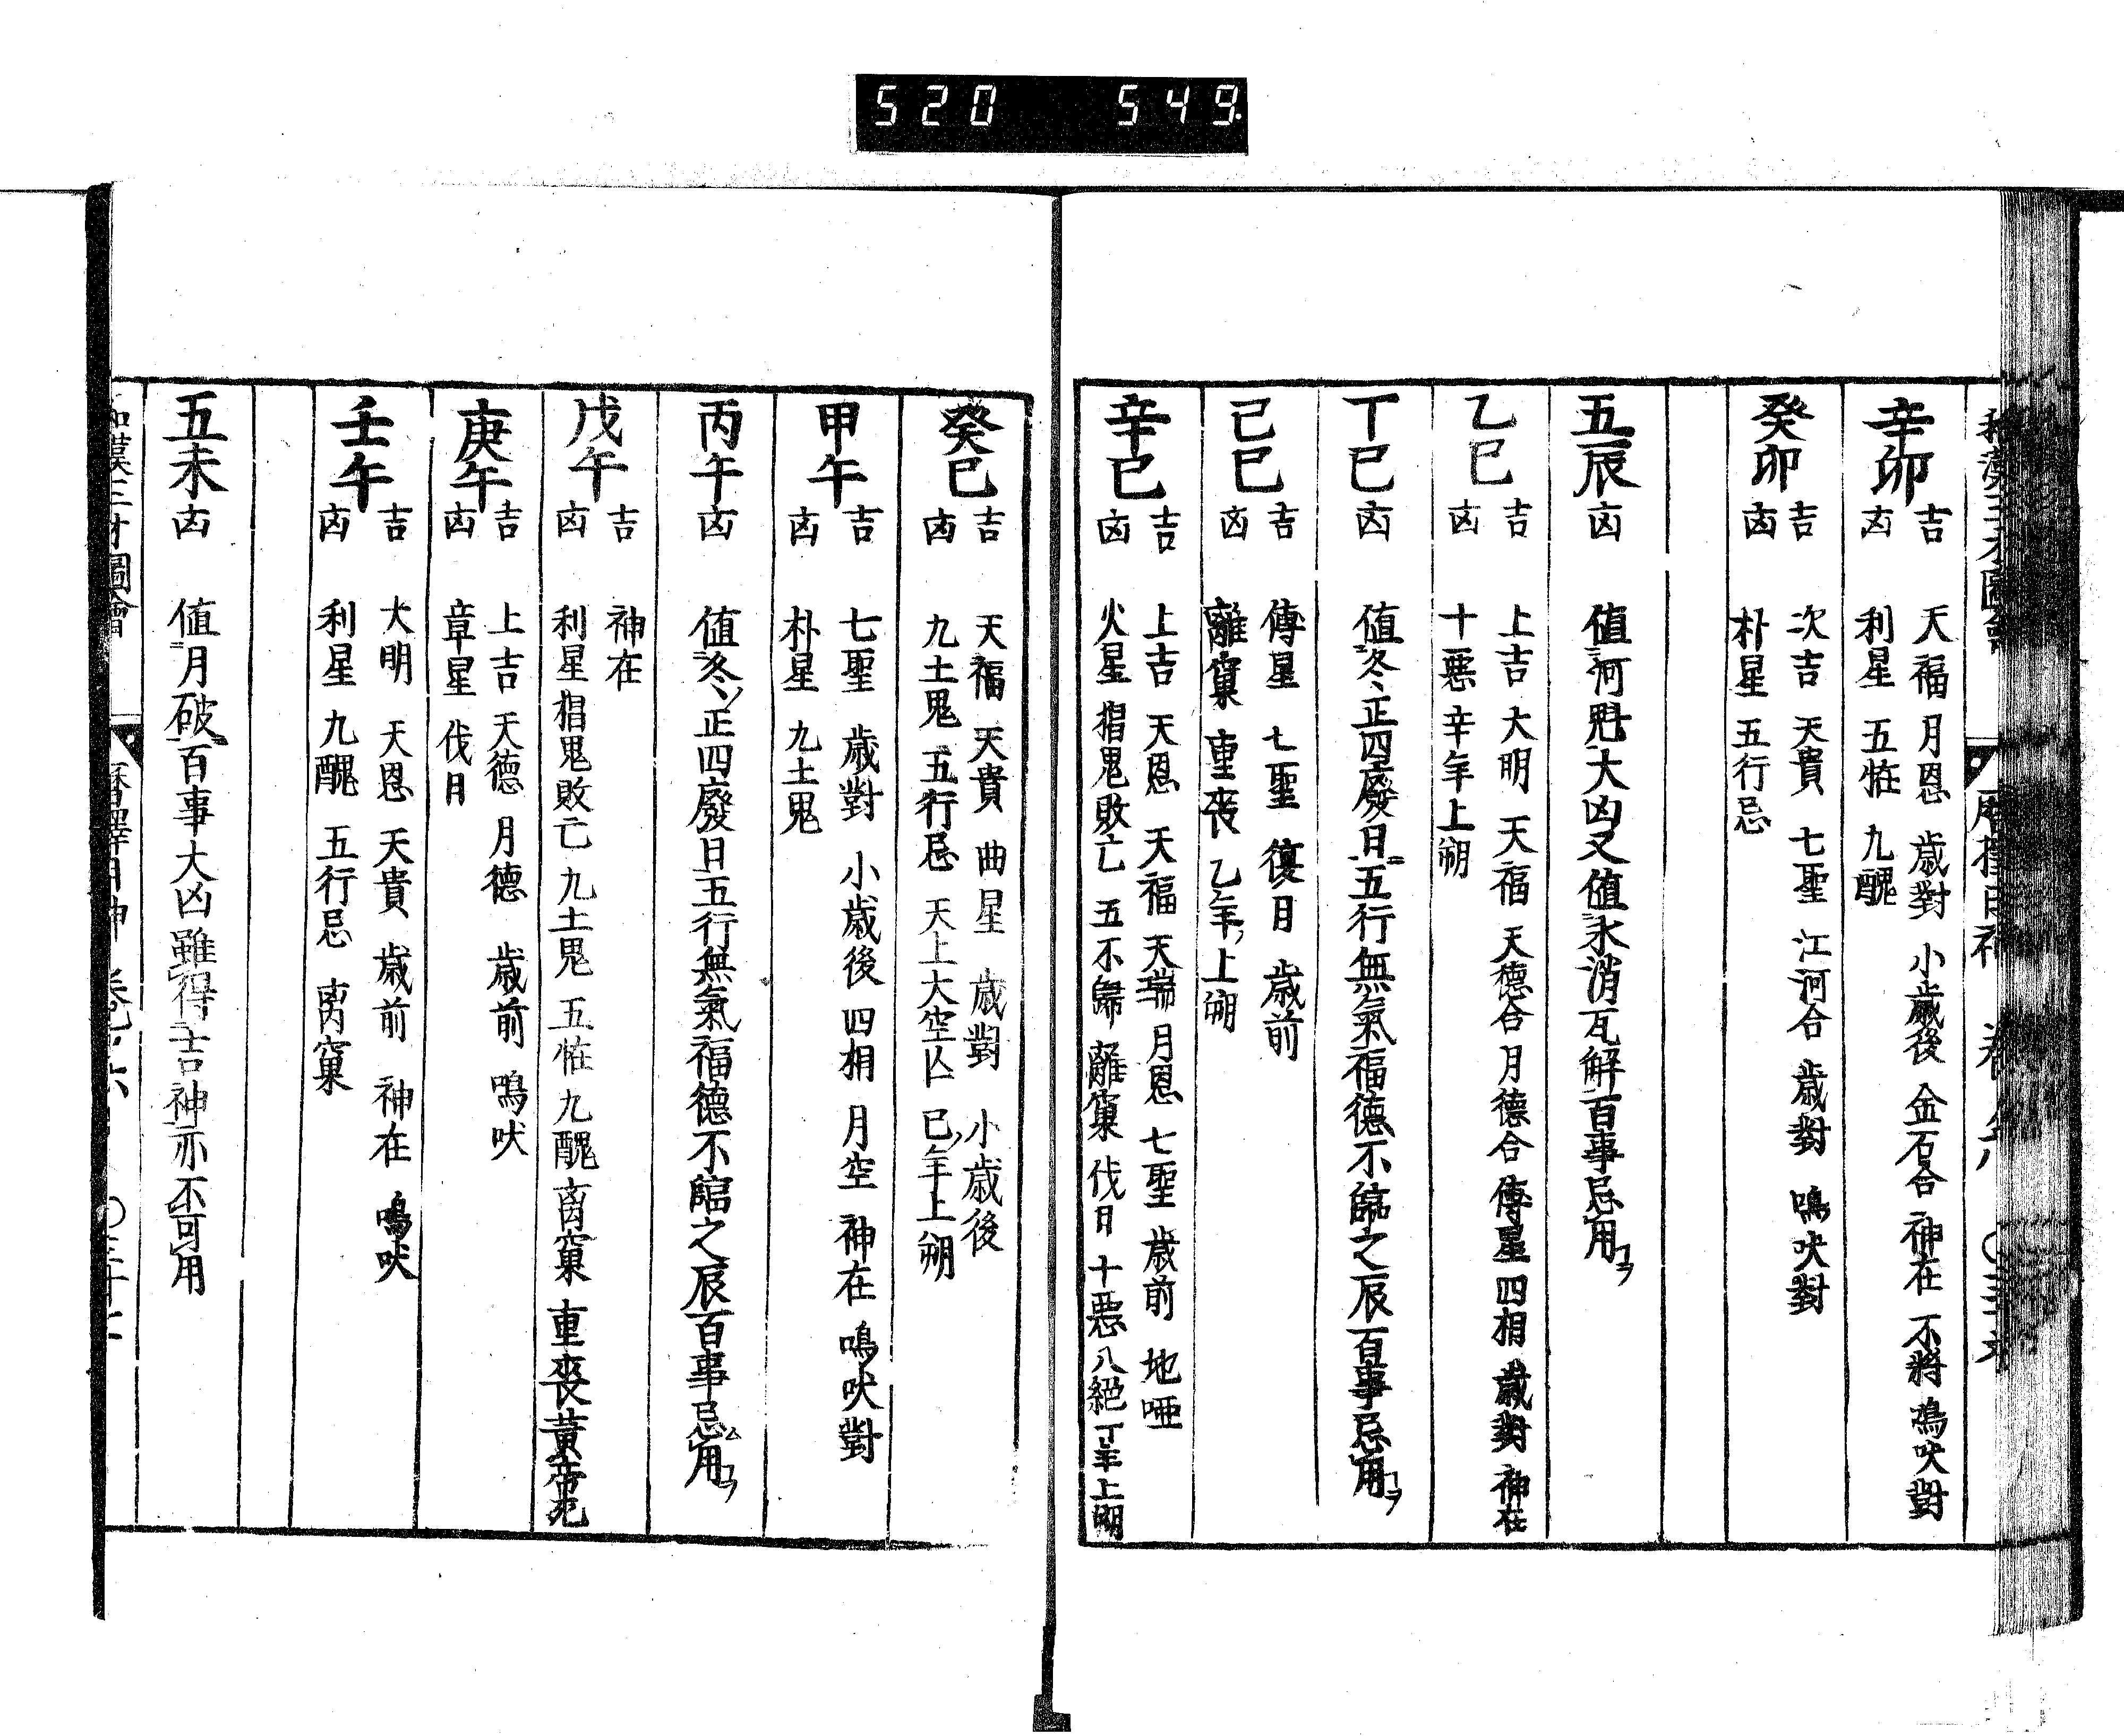 520 549
和漢三才圖會 暦擇日神 卷ノ六
辛卯
吉 天福 月恩 歳對 小歳後 金石合 神在 不將 鳴吠對
凶 利星 五恠 九醜
癸卯
吉 次吉 天貴 七聖 江河合 歳對 鳴吠對
凶 朴星 五行忌
五辰 凶 値河魁大凶又値氷消瓦解百事忌用コヲ
乙巳
吉 上吉 大明 天福 天德合 月德合 傳星 四相 歳對 神在
凶 十悪 辛年上朔
丁巳 凶 値冬〻正四廢日五行無氣福德不臨之辰百事忌用コヲ
己巳
吉 傳星 七聖 復月 歳前
凶 離窠 重喪 乙年上朔
辛巳
吉 上吉 天恩 天福 天瑞 月恩 七聖 歳前 地啞
凶 火星 猖鬼敗亡 五不歸 離窠 伐日 十惡 八絕 丁年上朔
癸巳
吉 天福 天貴 曲星 歳對 小歳後
凶 九土鬼 五行忌 天上大空亡 巳年上朔
甲午
吉 七聖 歳對 小歳後 四相 月空 神在 鳴吠對
凶 朴星 九土鬼
丙午 凶 値冬〻正四廢日五行無氣福德不臨之辰百事忌用コヲ
戊午
吉 神在
凶 利星 猖鬼敗亡 九土鬼 五恠 九醜 离窠 重喪 黃帝死
庚午
吉 上吉 天德 月德 歳前 鳴吠
凶 章星 伐日
壬午
吉 大明 天恩 天貴 歳前 神在 鳴吠
凶 利星 九醜 五行忌 离窠
五未 凶 値月破百事大凶雖得吉神亦不可用
和漢三才圖會 暦擇日神 卷ノ六